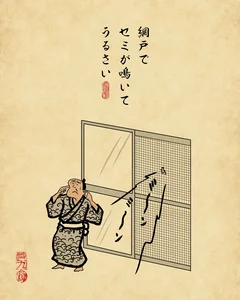 網戸で
セミが鳴いて
うるさい
ミーン
ミーン